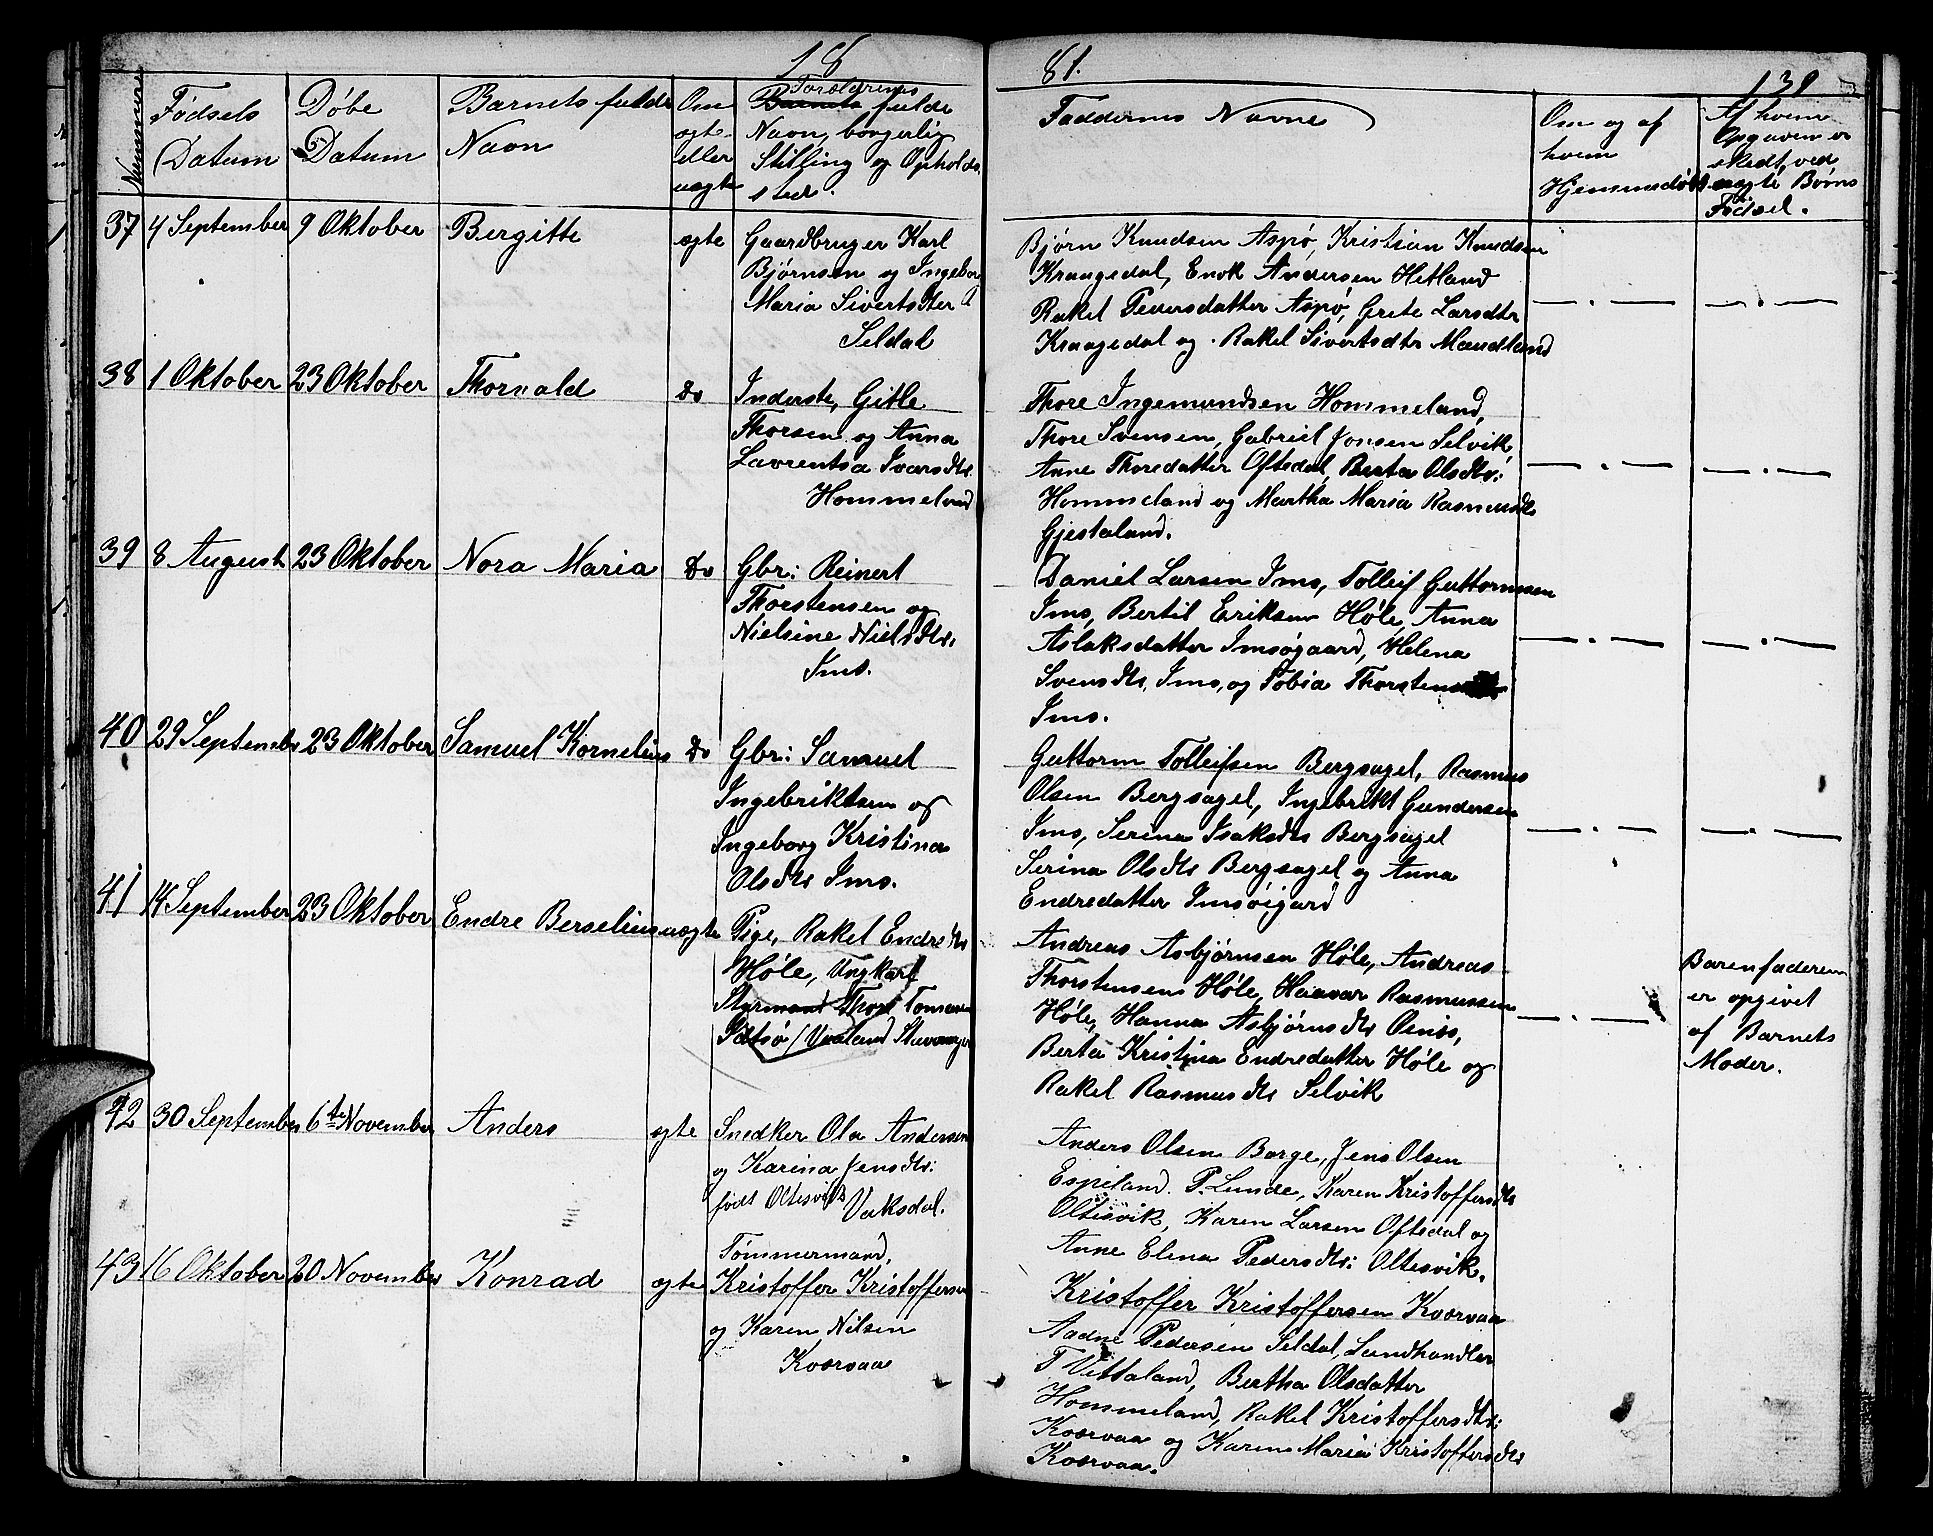 18
81.
139
Nummere
Fødsels
Datum
Døbe
Datum
Barnets fulde
Navn
Om
ægte
eller
uægte
Forældrenes
Barnets fulde
Navn, borgerlig
Stilling og Opholds
sted.
Faddernes Navne
Om og af
hvem
Hjemmedøbt
Af hvem
Opgaven er
skedt, ved
uægte Børns
Fødsel.
37 4 September 9 Oktober Bergitte ægte Gaardbruger Karl
Bjørnsen og Ingeborg
Maria Sivertsdter
Seldal
Bjørn Knudsen Aspø, Kristian Knudsen
Kraagedal, Enok Andersen Hetland
Rakel Pedersdatter Aspø, Grete Larsdtr
Kraagedal og Rakel Sivertsdtr Maudland
38 1 Oktober 23 Oktober Thorvald Do Inderste, Gitle
Thorsen og Anna
Lavrentsa Ivarsdtr
Hommeland
Thore Ingemundsen Hommeland,
Thore Svensen, Gabriel Jonsen Selvik,
Anne Thoredatter Oftedal, Berta Olsdtr:
Hommeland og Martha Maria Rasmusdtr
Gjestaland.
39 8 August 23 Oktober Nora Maria Do Gbr: Reinert
Thorstensen og
Nielsine Nielsdtr:
Ims.
Daniel Larsen Ims, Tolleif Guttormsen
Ims, Bertil Eriksen Høle, Anna
Aslaksdatter Imsøgaard, Helena
Svensdtr, Ims, og Tobia
Ims.
40 29 Septembr 23 Oktober Samuel Kornelius Do Gbr: Samuel
Ingebriktsen og
Ingeborg Kristina
Olsdtr Ims.
Guttorm Tolleifsen Bergsagel, Rasmus
Olsen Bergsagel, Ingebrikt Gundersen
Ims, Serina Isaksdtr Bergsagel
Serina Olsdtr Bergsagel og Anna
Endredatter Imsøigard
41 14 September 23 Oktober Endre Berselius uægte Pige, Rakel Endredtr
Høle, Ungkarl
Styrmand Thore
Stavanger
Andreas Asbjørnsen Høle, Andreas
Thorstensen Høle, Haavar Rasmussen
Høle, Hanna Asbjørnsdtr
Berta Kristina Endredatter Høle og
Rakel Rasmusdtr Selvik
Barenfaderen
er opgivet
af Barnets
Moder.
42 30 September 6te November Anders ægte Snedker Ola Andersen
og Karina Jensdtr:
født Oltesvik Vaksdal.
Anders Olsen Borge, Jens Olsen
Espeland. P. Lunde, Karen Kristoffersdtr
Oltesvik, Karen Larsen Oftedal og
Anne Elena Pedersdtr: Oltesvik.
43 16 Oktober 20 November Konrad ægte Tømmermand,
Kristoffer Kristoffersen
og Karen Nilsen
Kværvaa
Kristoffer Kristoffersen Kværvaa
Aadne Pedersen Seldal, Landhandler
T Vittaland, Bertha Olsdatter
Hommeland, Rakel Kristoffersdtr:
Kværvaa og Karen Maria Kristoffersdtr
Kværvaa.